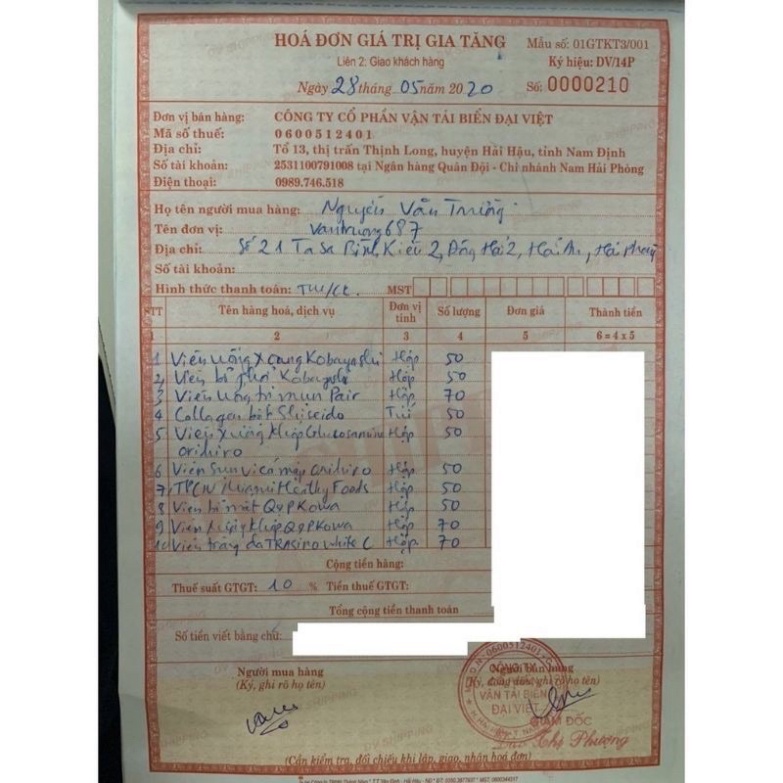 HOÁ ĐƠN GIÁ TRỊ GIA TĂNG
Mẫu số: 01GTKT3/001
Liên 2: Giao khách hàng
Ký hiệu: DV/14P
Ngày 28 tháng 05 năm 2020
Số: 0000210
Đơn vị bán hàng: CÔNG TY CỔ PHẦN VẬN TẢI BIỂN ĐẠI VIỆT
Mã số thuế: 0600512401
Địa chỉ: Tổ 13, thị trấn Thịnh Long, huyện Hải Hậu, tỉnh Nam Định
Số tài khoản: 2531100791008 tại Ngân hàng Quân Đội - Chi nhánh Nam Hải Phòng
Điện thoại: 0989.746.518
Họ tên người mua hàng: Nguyễn Văn Trường
Tên đơn vị: Vantruong687
Địa chỉ: Số 21 Bình Kiều 2, Đông Hải 2, Hải An, Hải Phòng
Số tài khoản:
Hình thức thanh toán: TM/CK MST
STT Tên hàng hoá, dịch vụ Đơn vị tính Số lượng Đơn giá Thành tiền
1 2 3 4 5 6 = 4 x 5
1 Viên uống Kobayashi Hộp 50
2 Viên bổ Kobayashi Hộp 50
3 Viên uống trị mụn Pair Hộp 70
4 Collagen bột Shiseido Túi 50
5 Viên xương khớp Glucosamine Hộp 50
Orihiro
6 Viên sụn vi cá mập Orihiro Hộp 50
7 TPCN Healthy Foods Hộp 50
8 Viên bổ mắt Q&P Kowa Hộp 50
9 Viên khớp Q&P Kowa Hộp 70
10 Viên trắng da TRASINO White C Hộp 70
Cộng tiền hàng:
Thuế suất GTGT: 10 % Tiền thuế GTGT:
Tổng cộng tiền thanh toán
Số tiền viết bằng chữ:
Người mua hàng
Người bán hàng
(Ký, ghi rõ họ tên)
(Ký, đóng dấu, ghi rõ họ tên)
0600512401
CÔNG TY
VẬN TẢI BIỂN
ĐẠI VIỆT
GIÁM ĐỐC
Thị Phượng
(Cần kiểm tra, đối chiếu khi lập, giao, nhận hoá đơn)